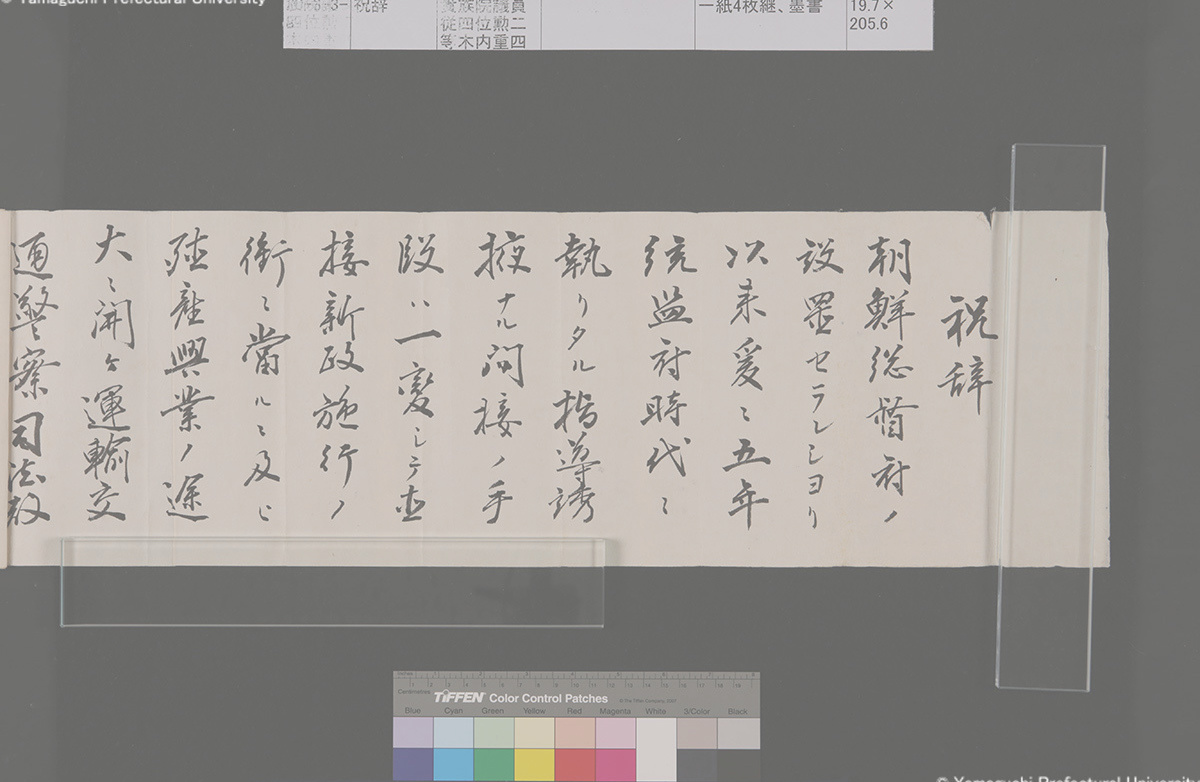 © Yamaguchi Prefectural University
祝辞
貴族院議員
従四位勲二
等木内重四
一紙4枚継、墨書
19.7×
205.6
祝辞
朝鮮総督府ノ
設置セラレシヨリ
以来爰ニ五年
統監府時代ニ
執リタル指導誘
掖ナル間接ノ手
段ハ一変シテ直
接新政施行ノ
衝ニ當ルニ及ヒ
殖産興業ノ途
大ニ開ケ運輸交
通警察司法教
Inches
Centimetres
TIFFEN Color Control Patches
© The Tiffen Company, 2007
Blue Cyan Green Yellow Red Magenta White 3/Color Black
© Yamaguchi Prefectural University